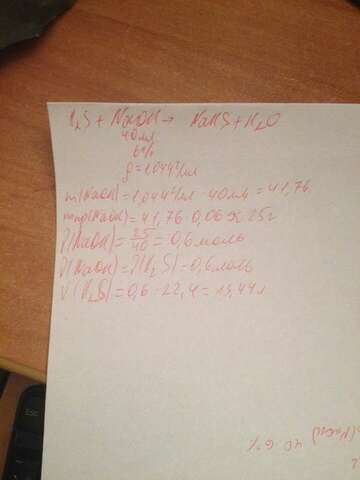 H₂S + NaOH → NaHS + H₂O
40мл
6%
ρ=1.044г/мл
m(NaOH)=1,044г/мл · 40мл = 41,76
mпр(NaOH)=41,76·0,06 25г
ν(NaOH)=25/40=0,6моль
ν(NaOH)=ν(H₂S)=0,6моль
V(H₂S)=0,6·22,4=13,44л
40 6%
ESC